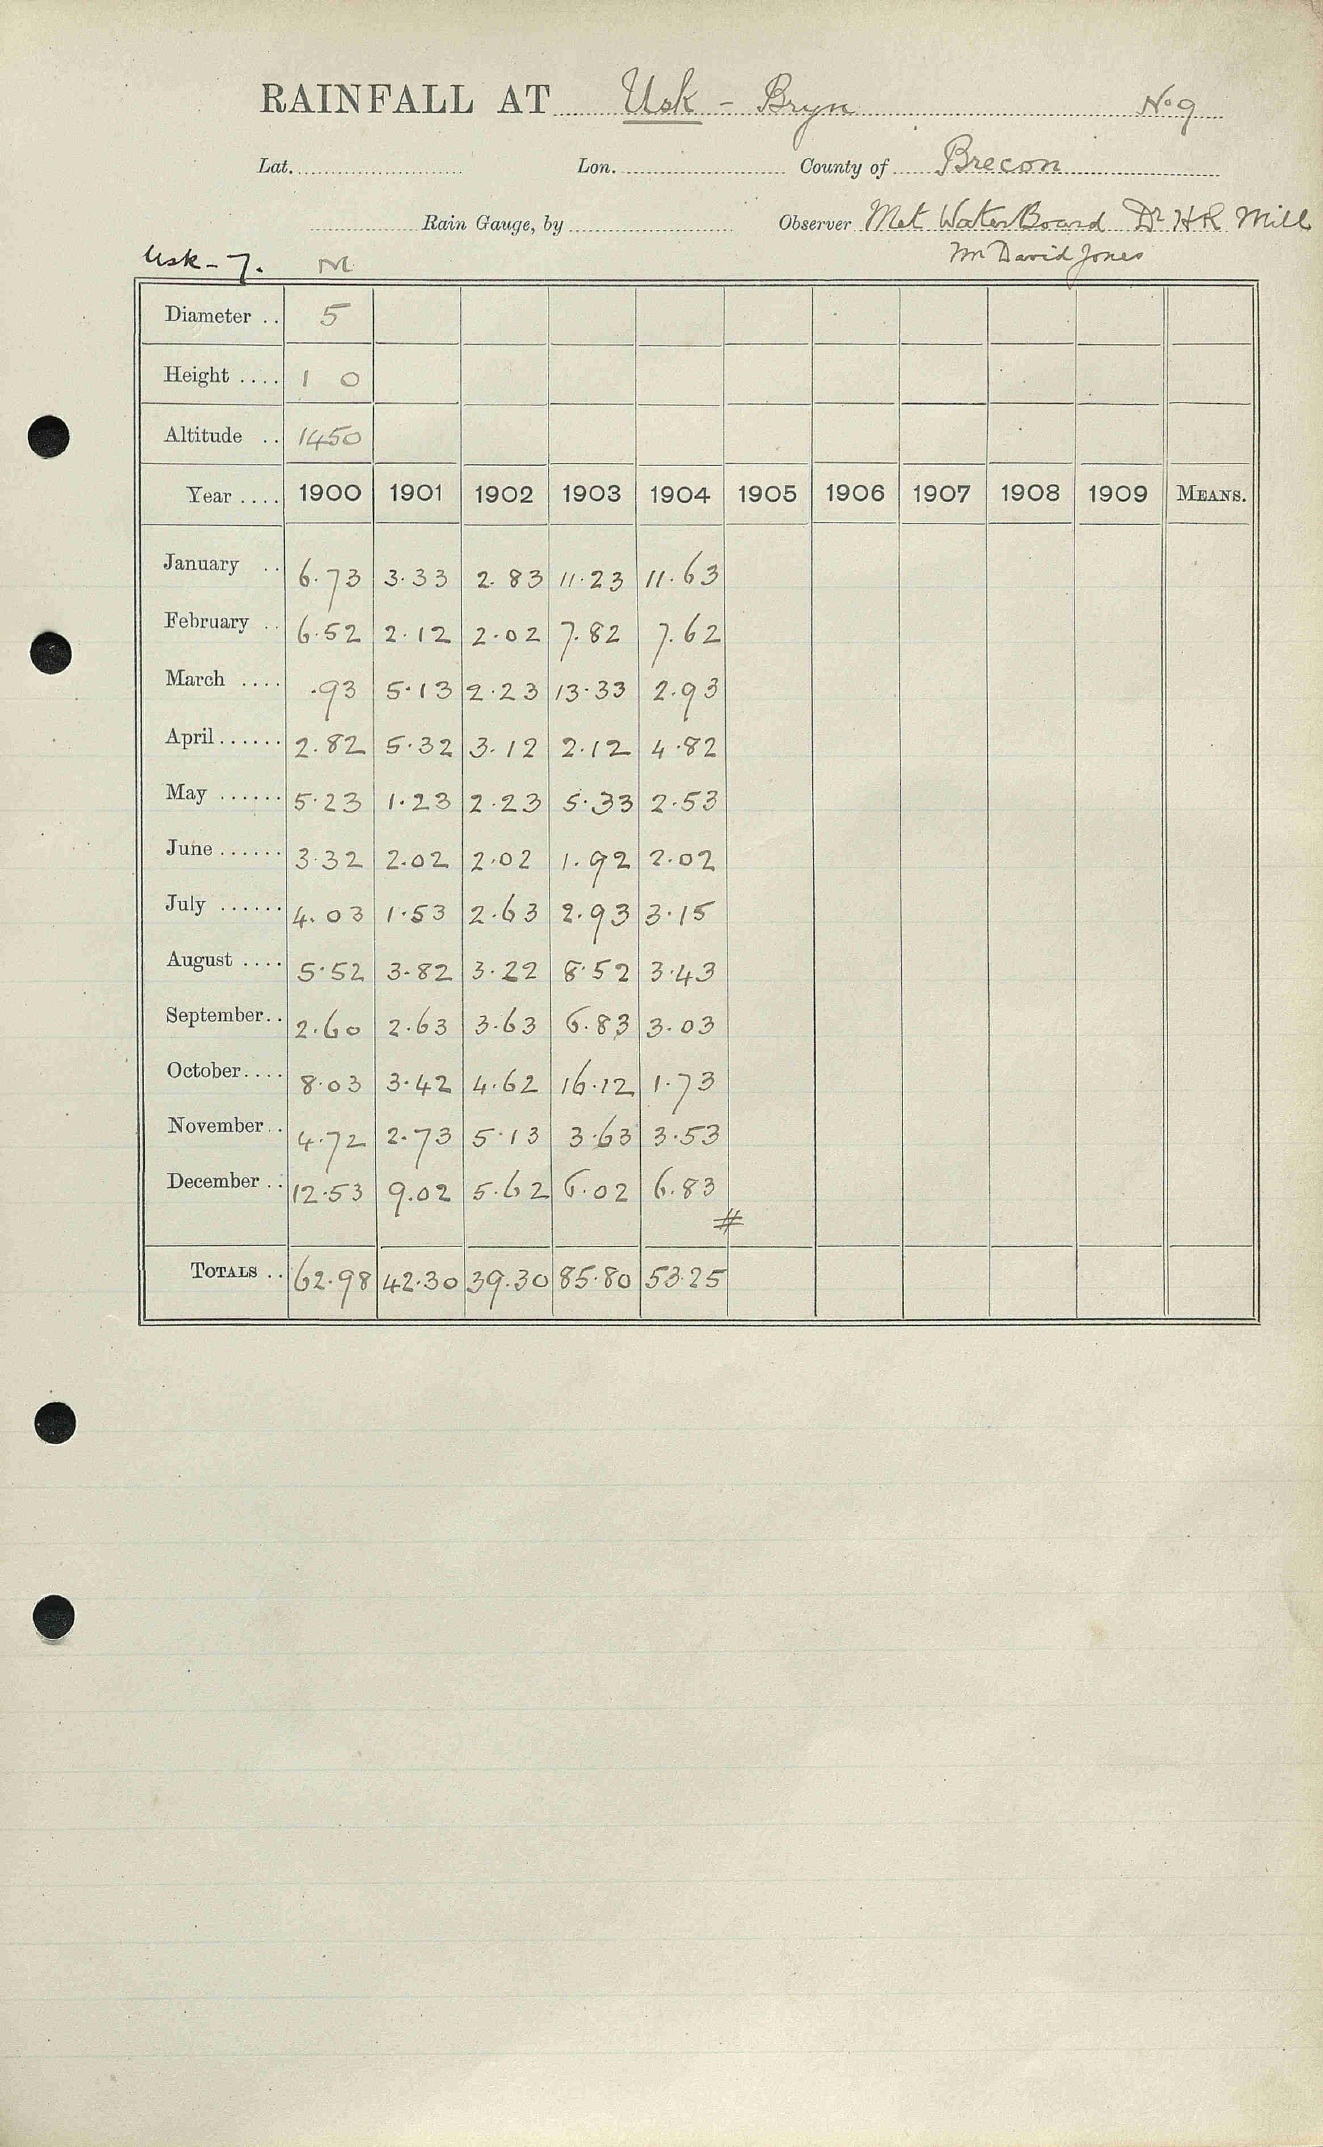 RAINFALL AT Usk - Bryn No 9
Lat. Lon. County of Brecon
Rain Gauge, by Observer Met Water Board Dr H R Mill
Usk - 7. M Mr David Jones
Diameter .. 5
Height .... 1 0
Altitude .. 1450
Year .... 1900 1901 1902 1903 1904 1905 1906 1907 1908 1909 MEANS.
January .. 6.73 3.33 2.83 11.23 11.63
February .. 6.52 2.12 2.02 7.82 7.62
March .... .93 5.13 2.23 13.33 2.93
April ...... 2.82 5.32 3.12 2.12 4.82
May ...... 5.23 1.23 2.23 5.33 2.53
June ...... 3.32 2.02 2.02 1.92 2.02
July ...... 4.03 1.53 2.63 2.93 3.15
August .... 5.52 3.82 3.22 8.52 3.43
September.. 2.60 2.63 3.63 6.83 3.03
October.... 8.03 3.42 4.62 16.12 1.73
November.. 4.72 2.73 5.13 3.63 3.53
December .. 12.53 9.02 5.62 6.02 6.83
#
TOTALS .. 62.98 42.30 39.30 85.80 53.25